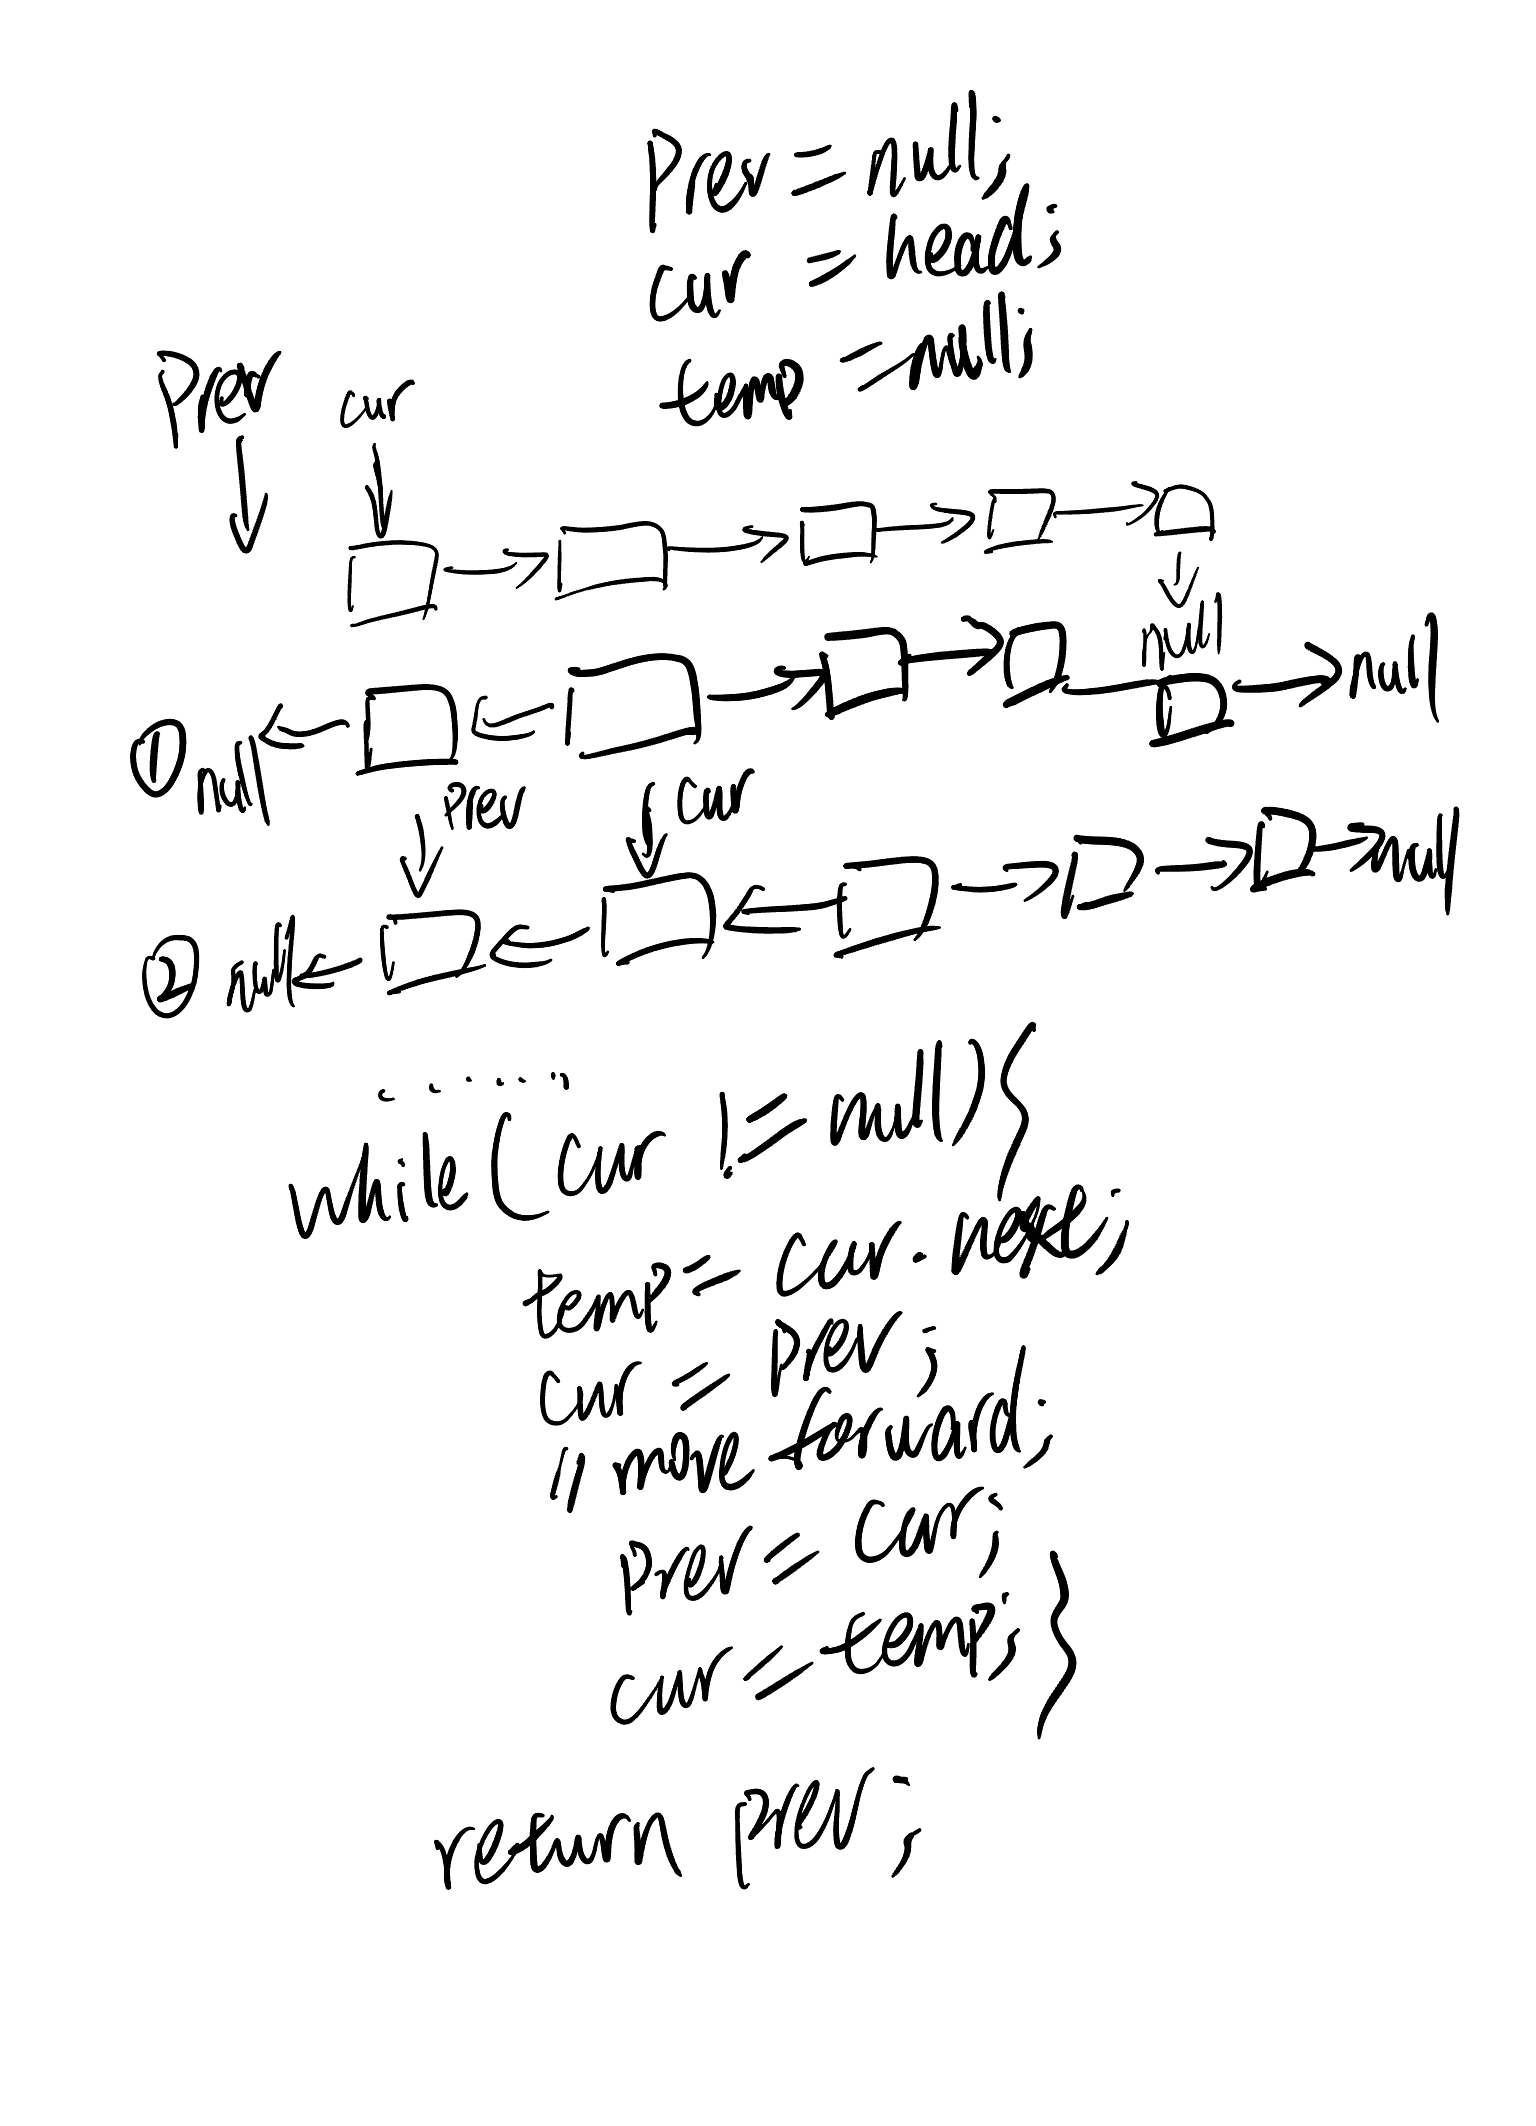 Prev = null;
cur = head;
temp = null;
Prev cur
null
null
① null
Prev cur
null
② null
......
while(cur != null){
temp = cur.next;
cur = prev;
// move forward;
prev = cur;
cur = temp; }
return prev;